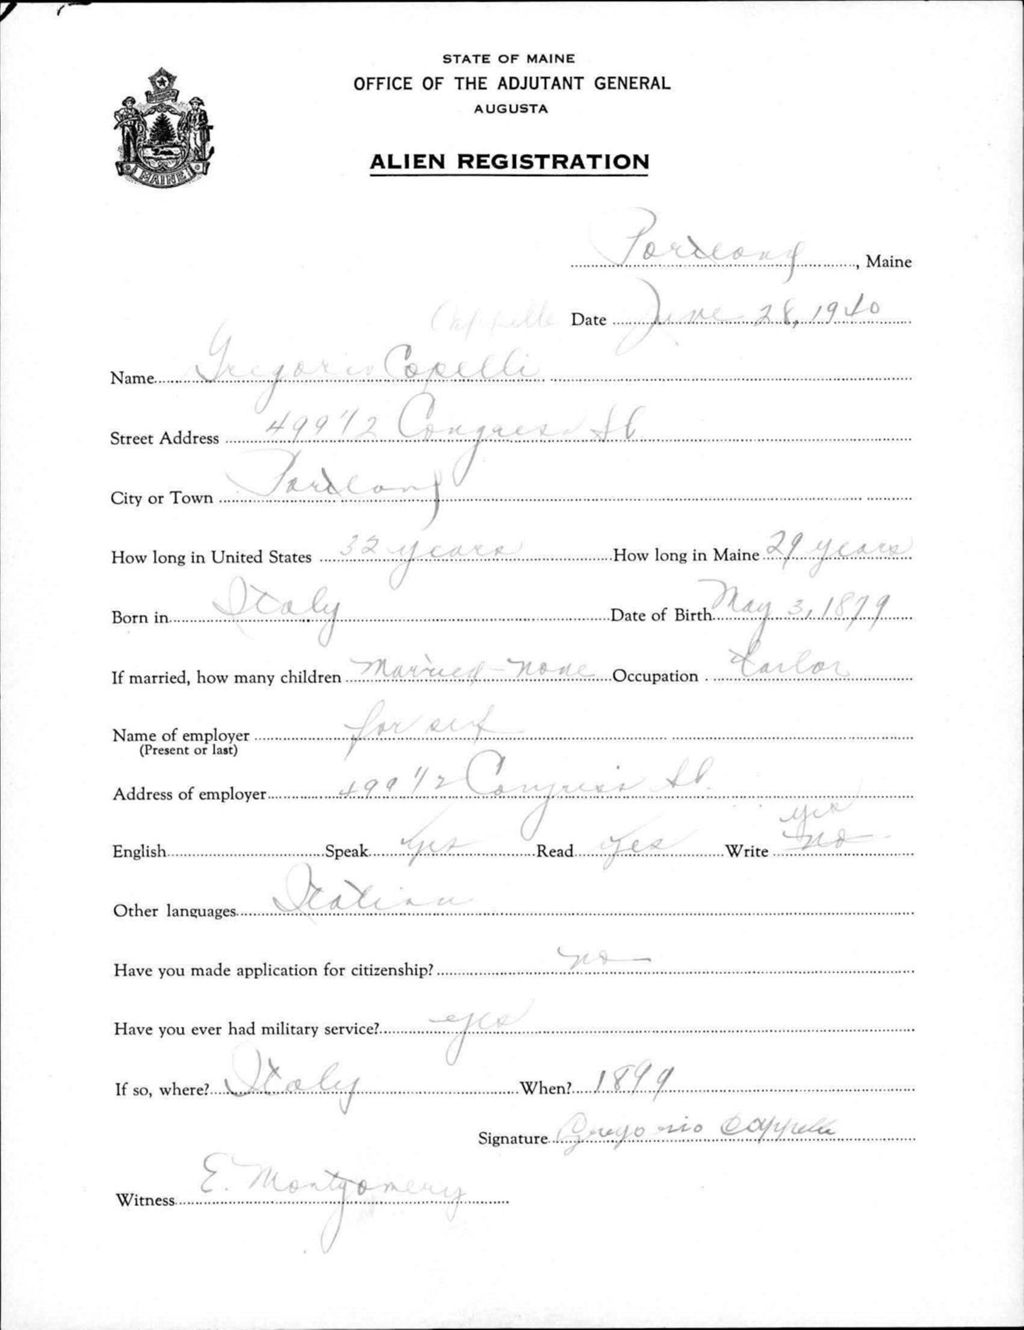 STATE OF MAINE
OFFICE OF THE ADJUTANT GENERAL
AUGUSTA
MAINE
ALIEN REGISTRATION
Portland, Maine
Cappelle
Date June 28, 1940
Name Gregorio Copelli
Street Address 499 1/2 Congress St
City or Town Portland
How long in United States 32 years How long in Maine 29 years
Born in Italy Date of Birth May 3, 1879
If married, how many children Married - none Occupation Tailor
Name of employer for self
(Present or last)
Address of employer 499 1/2 Congress St.
yes
English Speak Yes Read Yes Write no
Other languages Italian
Have you made application for citizenship? no
Have you ever had military service? yes
If so, where? Italy When? 1899
Signature Gregorio Cappelle
Witness E. Montgomery